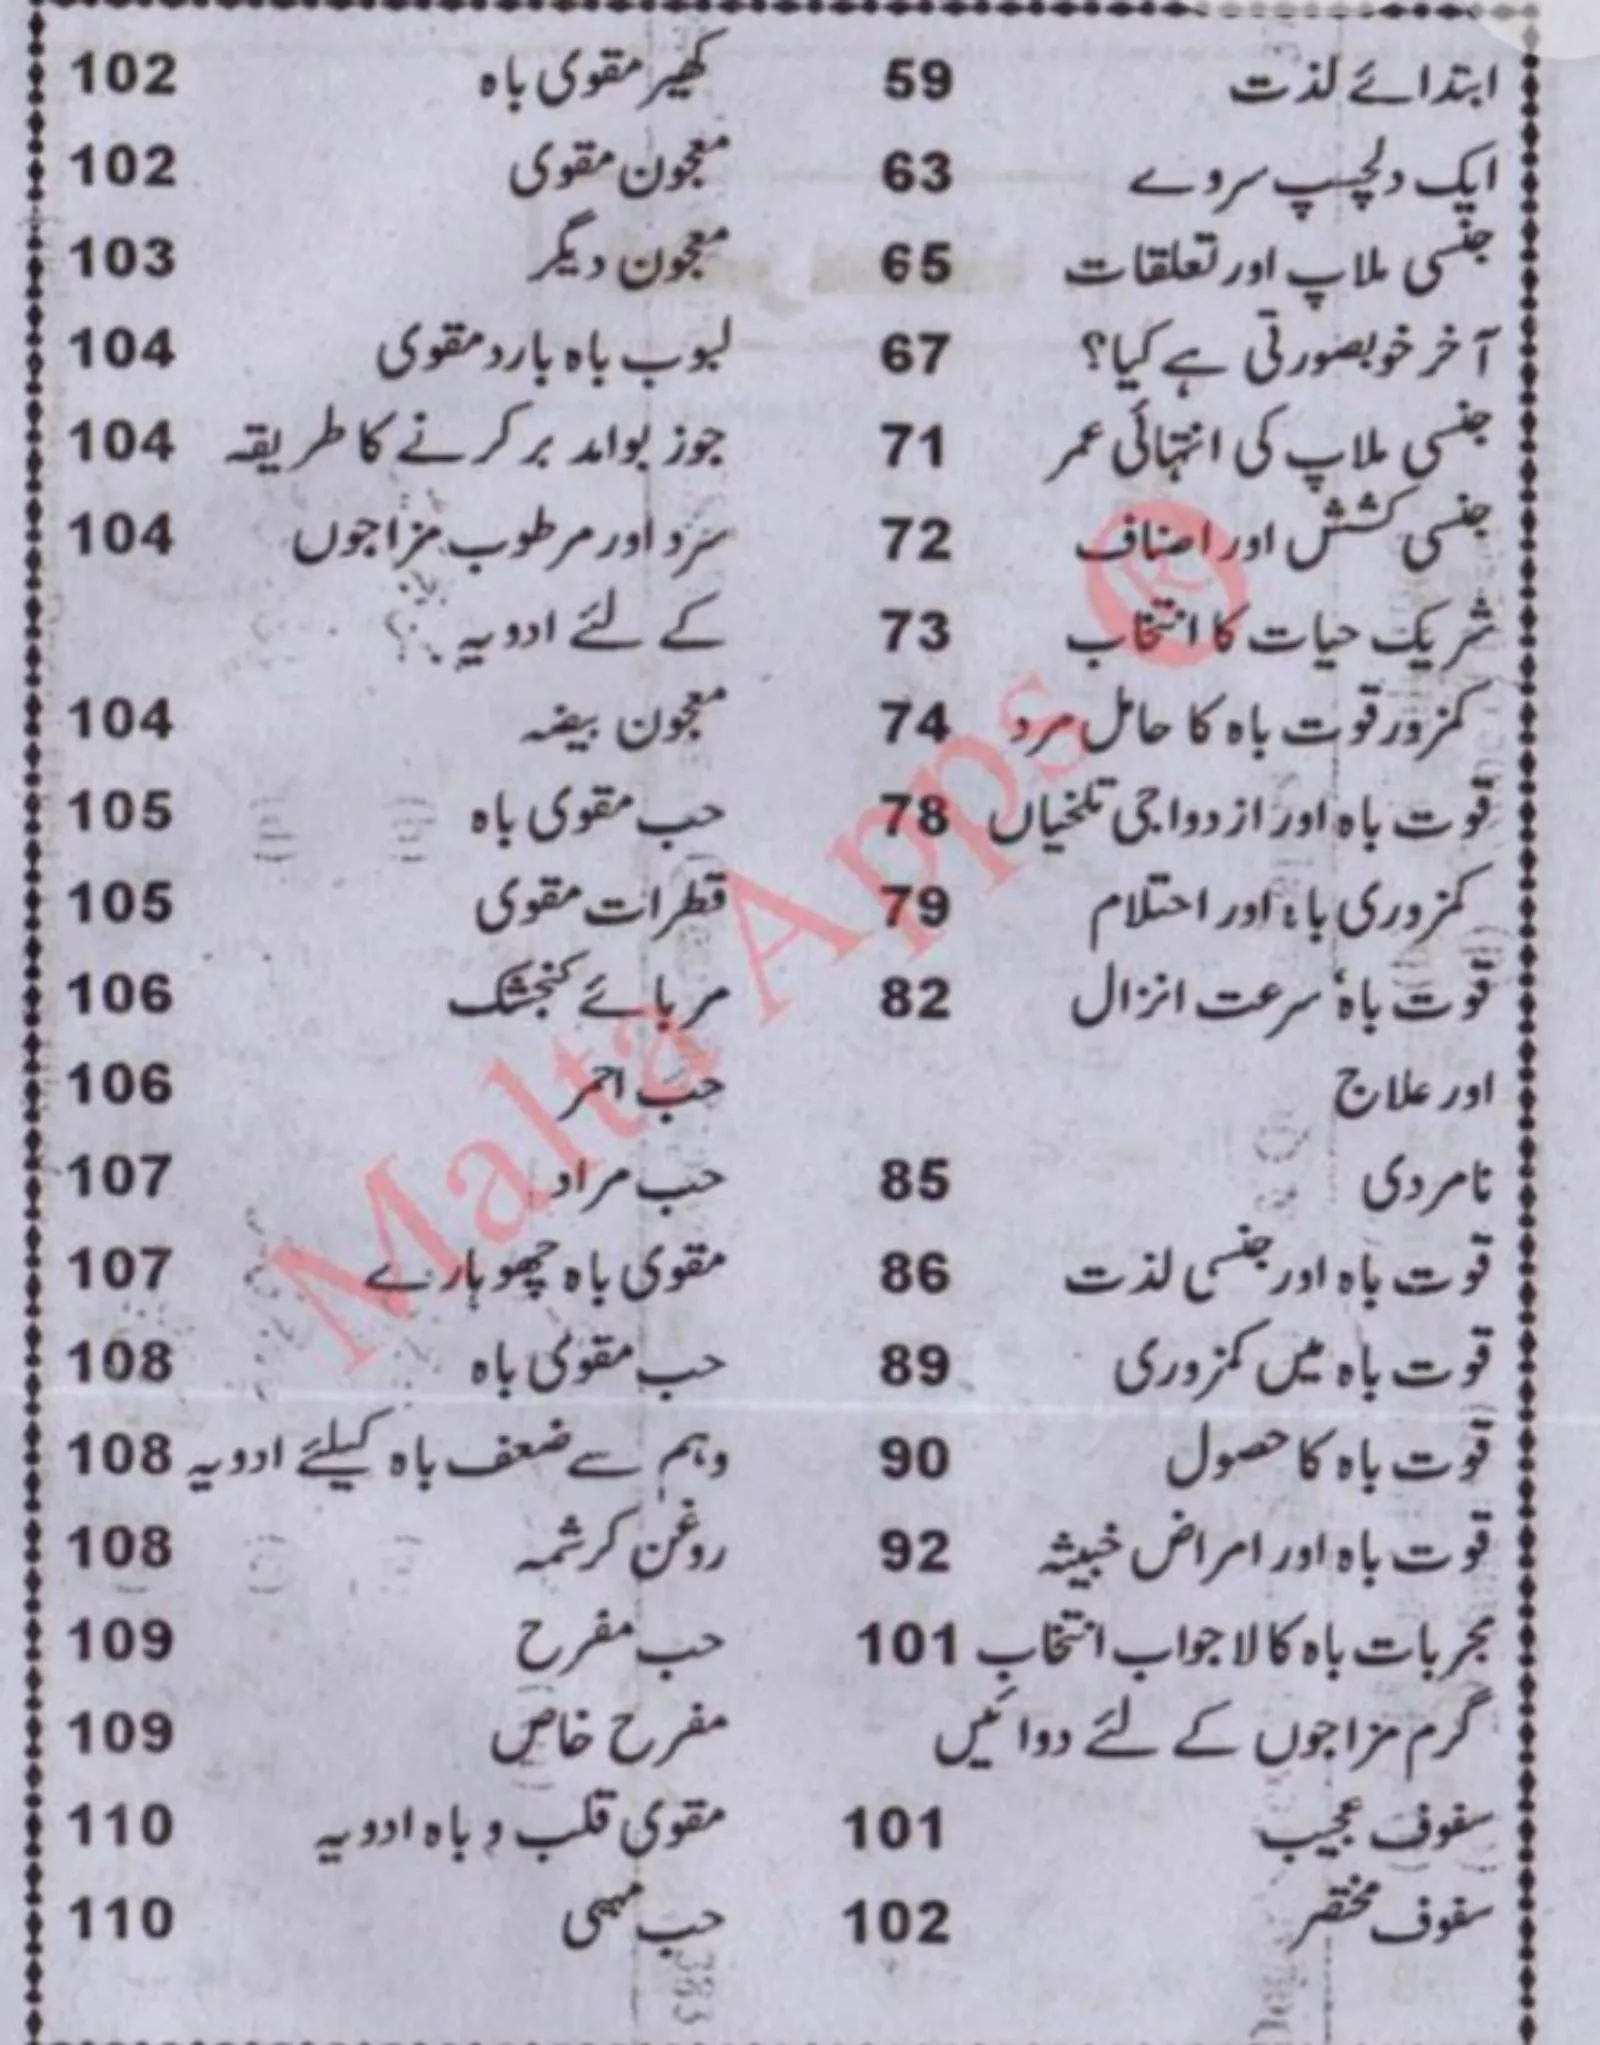 ابتدائے لذت 59
ایک دلچسپ سروے 63
جنسی ملاپ اور تعلقات 65
آخر خوبصورتی ہے کیا؟ 67
جنسی ملاپ کی انتہائی عمر 71
جنسی کشش اور اصناف 72
شریک حیات کا انتخاب 73
کمزور قوت باہ کا حامل مرد 74
قوت باہ اور ازدواجی تلخیاں 78
کمزوری باہ اور احتلام 79
قوت باہ' سرعت انزال 82
اور علاج
نامردی 85
قوت باہ اور جنسی لذت 86
قوت باہ میں کمزوری 89
قوت باہ کا حصول 90
قوت باہ اور امراض خبیثہ 92
مجربات باہ کا لاجواب انتخاب 101
گرم مزاجوں کے لئے دوائیں
سفوف عجیب 101
سفوف مختصر 102
کھیر مقوی باہ 102
معجون مقوی 102
معجون دیگر 103
لبوب باہ بارد مقوی 104
جوز بوامد بر کرنے کا طریقہ 104
سرد اور مرطوب مزاجوں 104
کے لئے ادویہ
معجون بیضہ 104
حب مقوی باہ 105
قطرات مقوی 105
مربائے کنجشک 106
حب احمر 106
حب مراد 107
مقوی باہ چھوہارے 107
حب مقوی باہ 108
وہم سے ضعف باہ کیلئے ادویہ 108
روغن کرشمہ 108
حب مفرح 109
مفرح خاص 109
مقوی قلب و باہ ادویہ 110
حب مبہی 110
Malta Apps ®